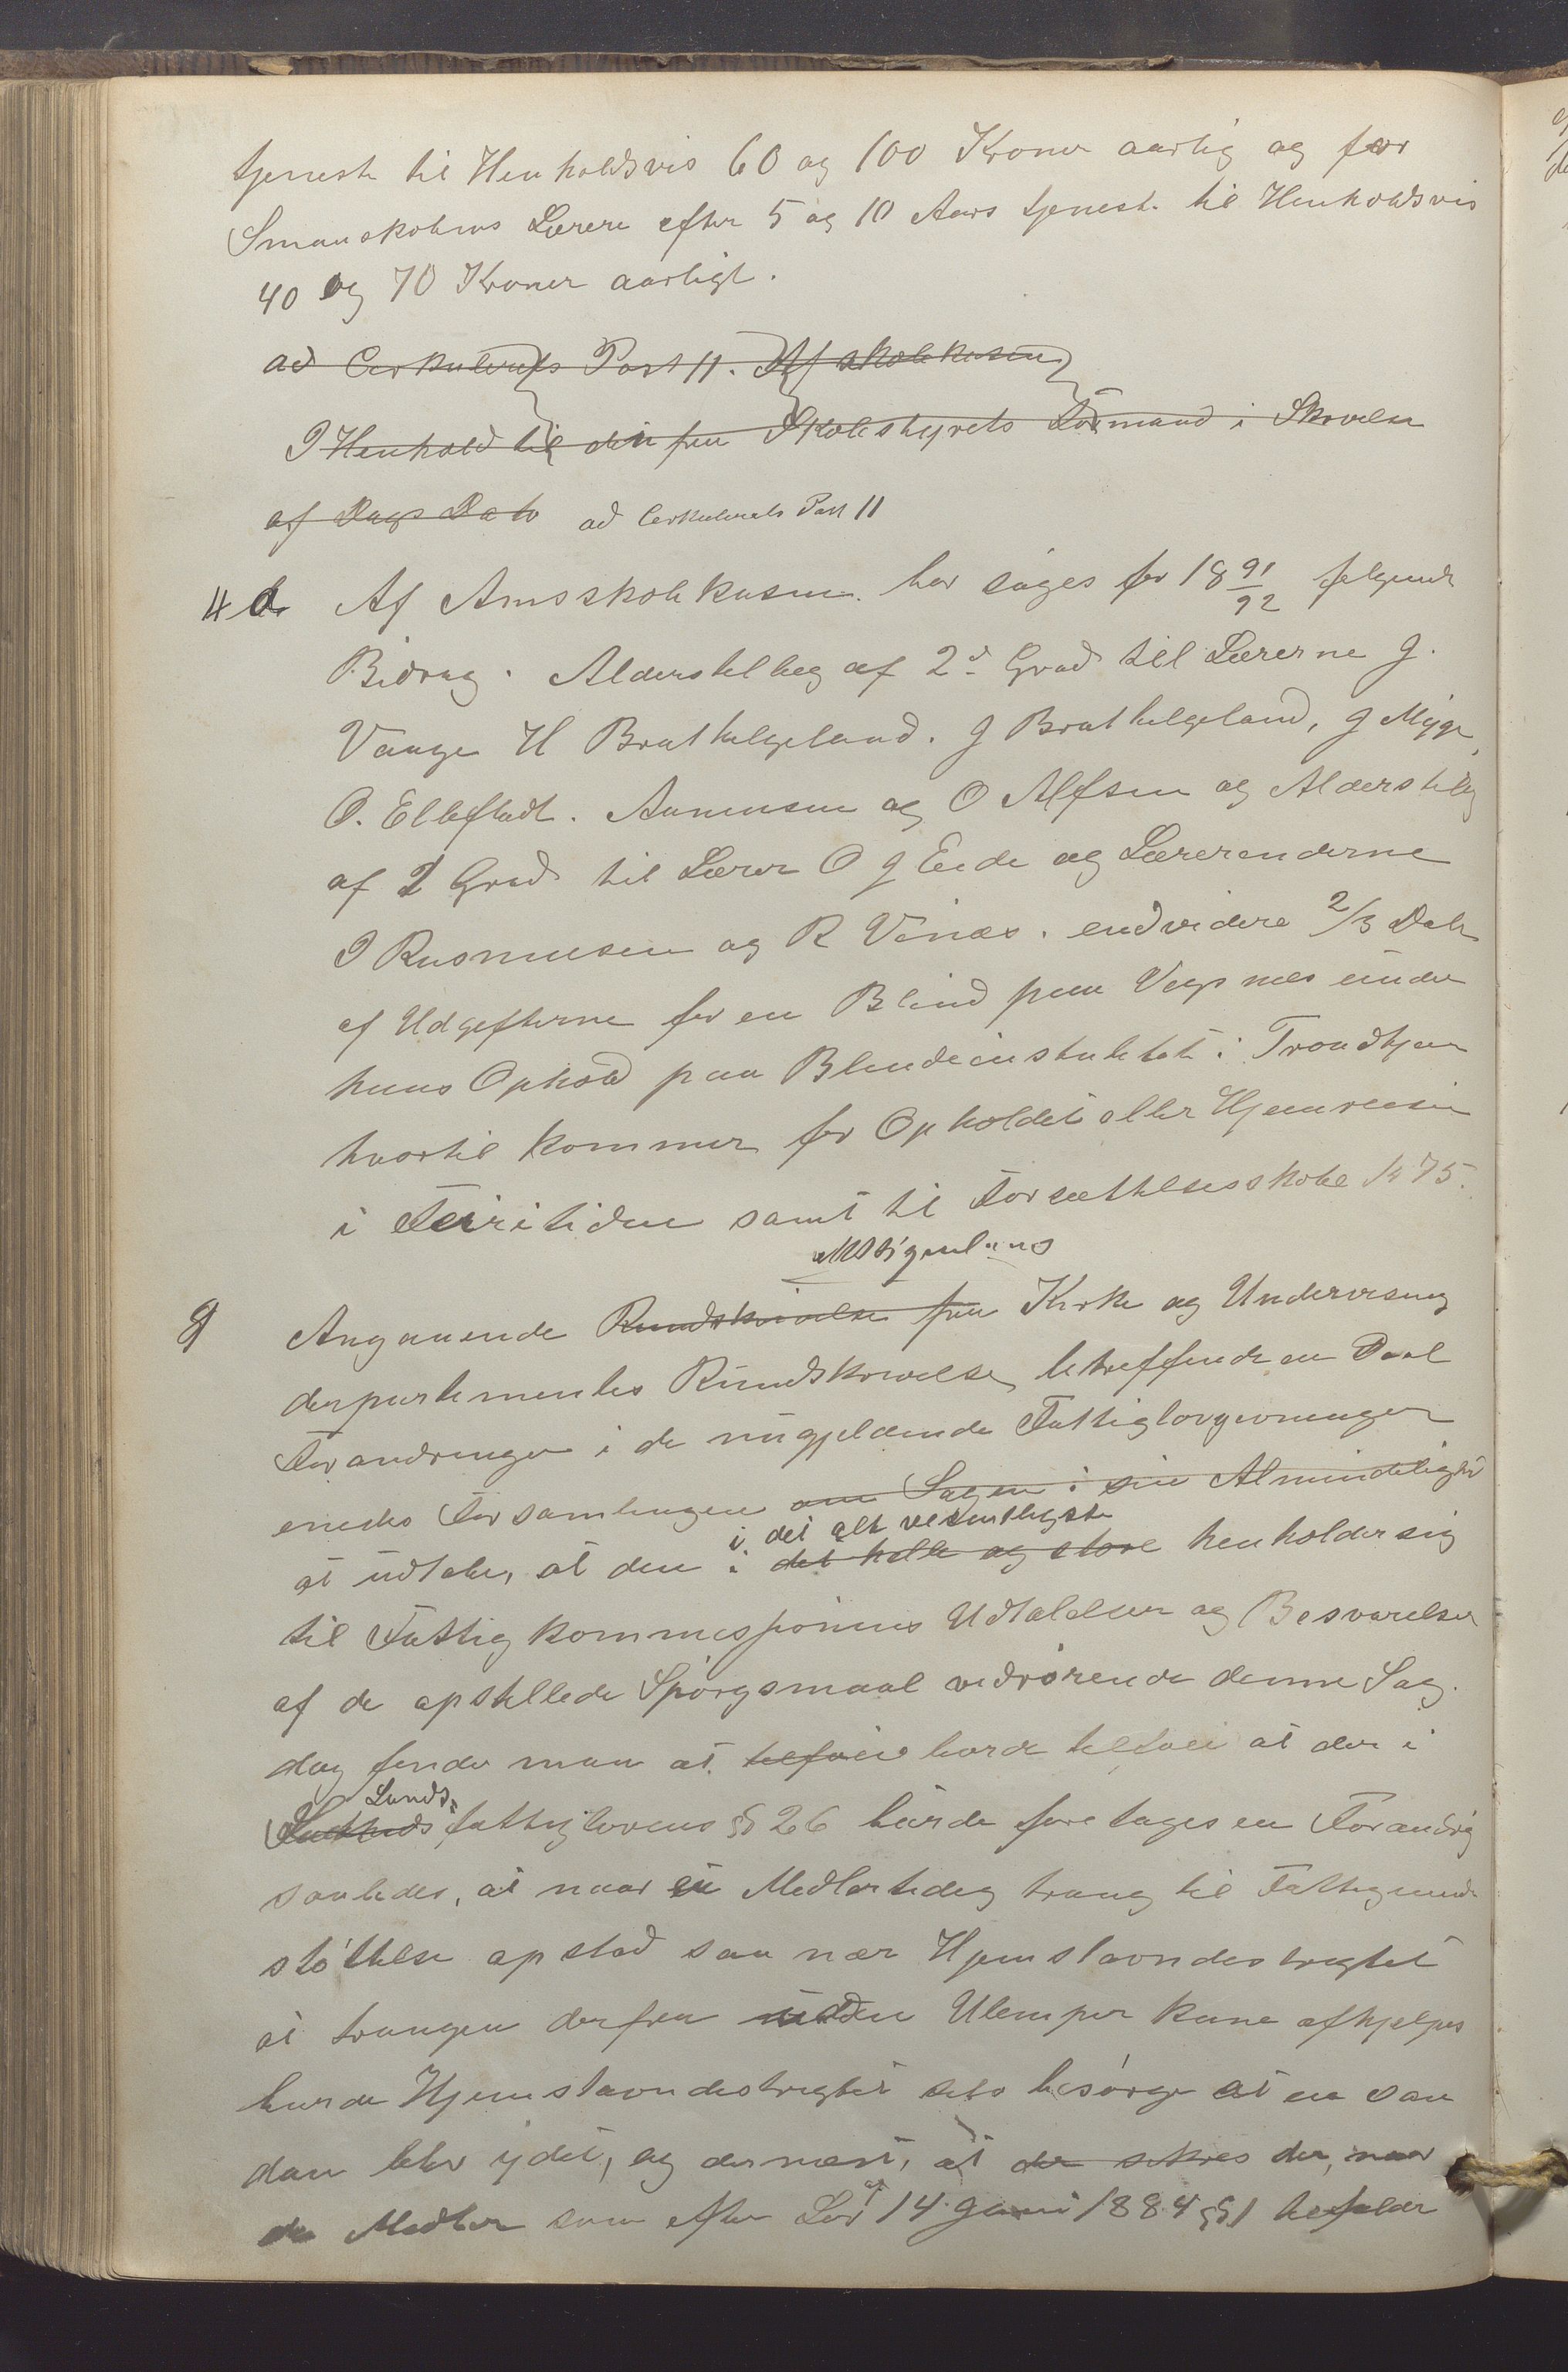 tjeneste til Henholdsvis 60 og 100 Kroner aarlig og for
Smaaskolens Lærere efter 5 og 10 Aars tjeneste til Henholdsvis
40 og 70 Kroner aarligt.
ad Cerkulerets Post 11. Af skolekassen
I Henhold til den fra Skolestyrets Formand i Skrivelse
af Dags Dato ad Cerkulerets Post 11
4 d Af Amsskolekassen bør søges for 18 91/92 følgende
Bidrag. Alderstillæg af 2d Grad til Lærerne J.
Vaage H Brathelgeland. J Brathelgeland, J Myge,
O. Ellefladt. Aanensen og O Alfsen og Alderstillæg
af 1 Grad til Lærer O J Eide og Lærerenderne
I Rasmussen og R Vinæs. endvidere 2/3 Dele
af Udgefterne for en Blind paa Vegsnæs under
hans Ophold paa Blindeinstutetet i Trondhjem
hvortil kommer for Opholdet eller Hjemreisen
i Feiritiden samt til Forsættelsesskole Kr 75.
g Angaaende Rundskrivelse fra Kirke og Undervisning
departementes Rundskrivelse betreffende en Deel
Forandringer i de nugjeldende Fattiglovgivninger
enedes Forsamlingen om Sagen i sin Almindelighed
i det alt vesentligste
at udtale, at den i det helle og store henholder sig
til Fattigkommisjonens Udtalelser og Besvarelser
af de opstillede Spørgsmaal vedrørende denne Sag.
dog finder man at tilføie burde tilføie at der i
Lands
fattiglovens § 26 burde foretages en Forandrig
saaledes, at naar en Medlertidig trang til Fattigunder
støttelse opstod saa nær Hjemstavndestrigtet
at trangen derfra uden Ulemper kune afhjelpes
burde Hjemstavndestrigtet selv besørge at en saa
dan blev ydet, og dernæst, at der sikres der, naar
de Midler som efter Lov af 14 Juni 1884 § 1 befaler